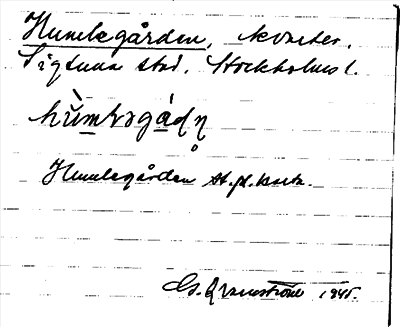 Humlegården, kvarter.
Sigtuna stad. Stockholms l.
Humlegården st.pl. karta.
G. Kvarnström 1945.